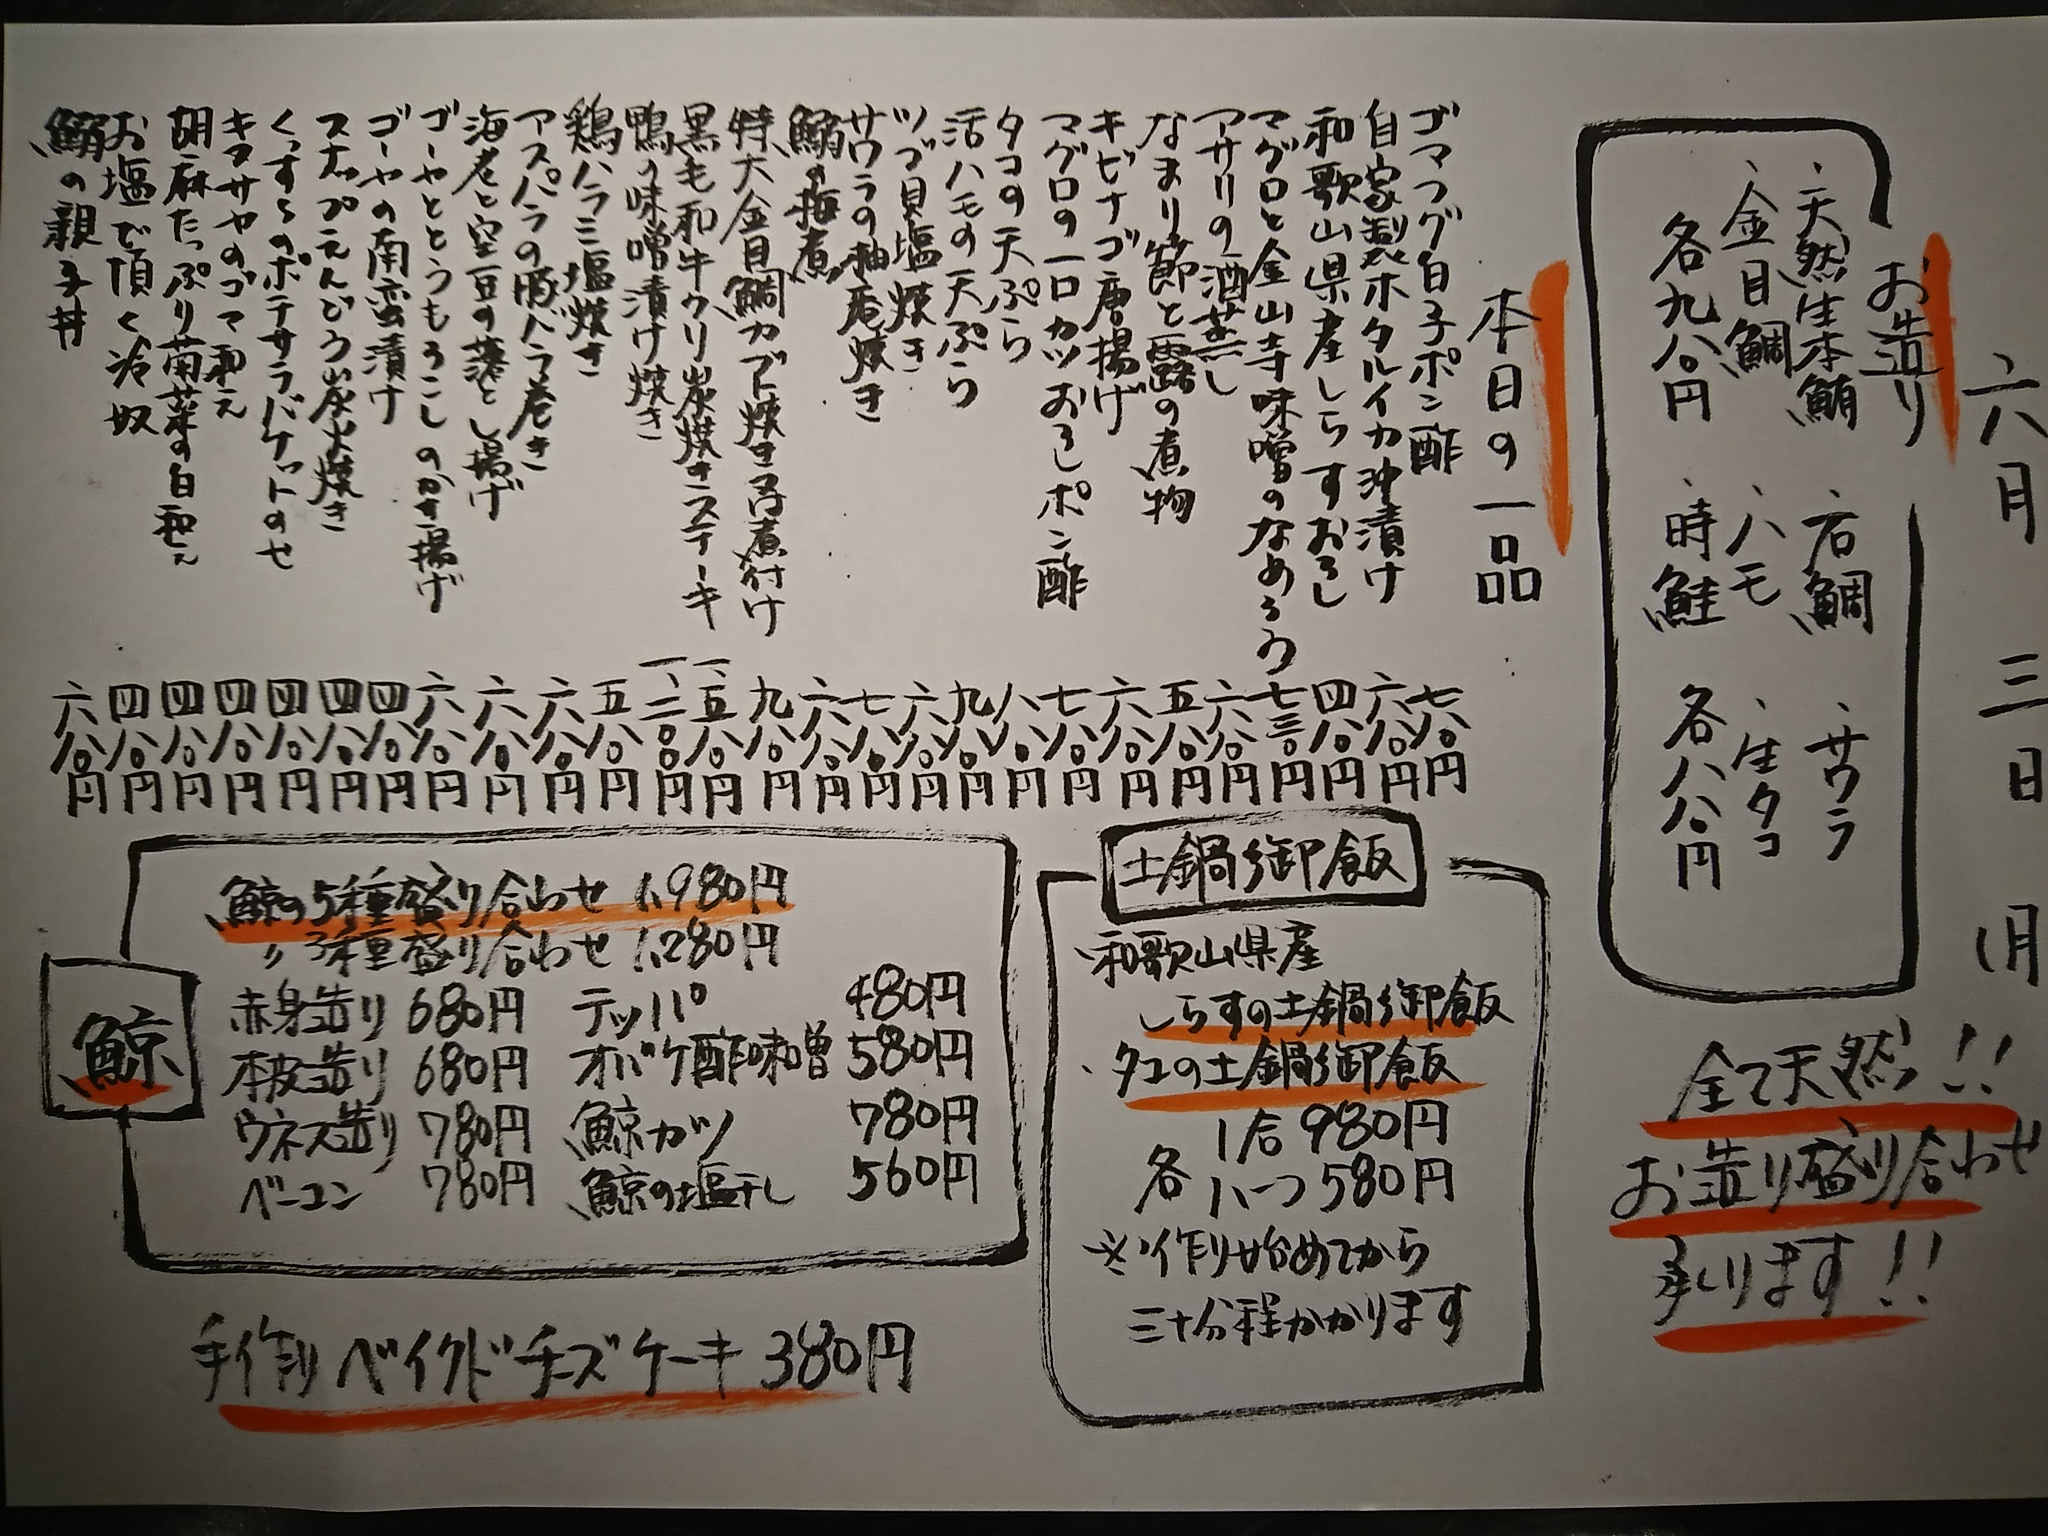 六月三日(月
お造り
・天然生本鮪
・金目鯛
各九八〇円
・石鯛
・ハモ
・時鮭
・サワラ
・生タコ
各八八〇円
全て天然!!
お造り盛り合わせ
承ります!!
本日の一品
ゴマフグ白子ポン酢 七八〇円
自家製ホタルイカ沖漬け 六八〇円
和歌山県産しらすおろし 四八〇円
マグロと金山寺味噌のなめろう 七三〇円
アサリの酒蒸し 六八〇円
なまり節と露の煮物 五八〇円
キビナゴ唐揚げ 六八〇円
マグロの一口カツおろしポン酢 七八〇円
タコの天ぷら 八八〇円
活ハモの天ぷら 九八〇円
ツブ貝塩焼き 六八〇円
サワラの柚庵焼き 七八〇円
鰯の梅煮 六八〇円
特大金目鯛カブト焼き又は煮付け 九八〇円
黒毛和牛ウリ炭焼きステーキ 一、五八〇円
鴨の味噌漬け焼き 一、二〇〇円
鶏ハラミ塩焼き 五八〇円
アスパラの豚バラ巻き 六八〇円
海老と空豆の落とし揚げ 六八〇円
ゴーヤととうもろこしのかき揚げ 六八〇円
ゴーヤの南蛮漬け 四八〇円
スナップえんどう炭火焼き 四八〇円
のポテサラバケットのせ 四八〇円
キヌサヤのゴマ和え 四八〇円
胡麻たっぷり菊菜の白和え 四八〇円
お塩で頂く冷奴 四八〇円
鰯の親子丼 六八〇円
土鍋御飯
・和歌山県産
しらすの土鍋御飯
・タコの土鍋御飯
各 1合 980円
ハーフ 580円
※作り始めてから
三十分程かかります
鯨
鯨の5種盛り合わせ 1,980円
〃3種盛り合わせ 1,280円
赤身造り 680円 テッパ 480円
本皮造り 680円 オバケ酢味噌 580円
ウネス造り 780円 鯨カツ 780円
ベーコン 780円 鯨の塩干し 560円
手作りベイクドチーズケーキ 380円